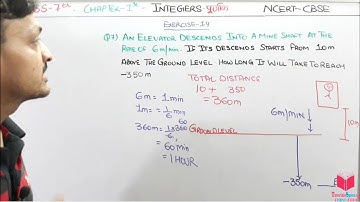 SS-7th. CHAPTER-1st INTEGERS पूर्णांक NCERT-CBSE
EXERCISE-1.4
Q7) AN ELEVATOR DESCENDS INTO A MINE SHAFT AT THE
RATE OF 6m/min. IF ITS DESCENDS STARTS FROM 10m
ABOVE THE GROUND LEVEL HOW LONG IT WILL TAKE TO REACH
-350m
TOTAL DISTANCE
10 + 350
= 360m
6m = 1min
1m = 1/6 min
360m = 1/6 x 360 60
= 60min
= 1 HOUR
GROUND LEVEL
6m/MIN
10m
-350m